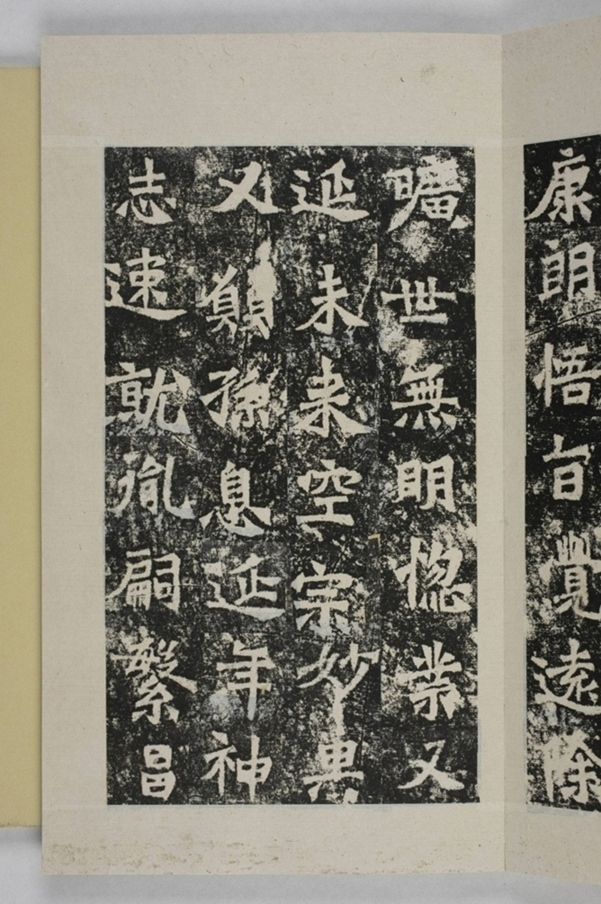 康朗悟旨覺遠除
曠世無明惚業又
延未来空宗妙果
又願孫息延年神
志速就胤嗣繁昌